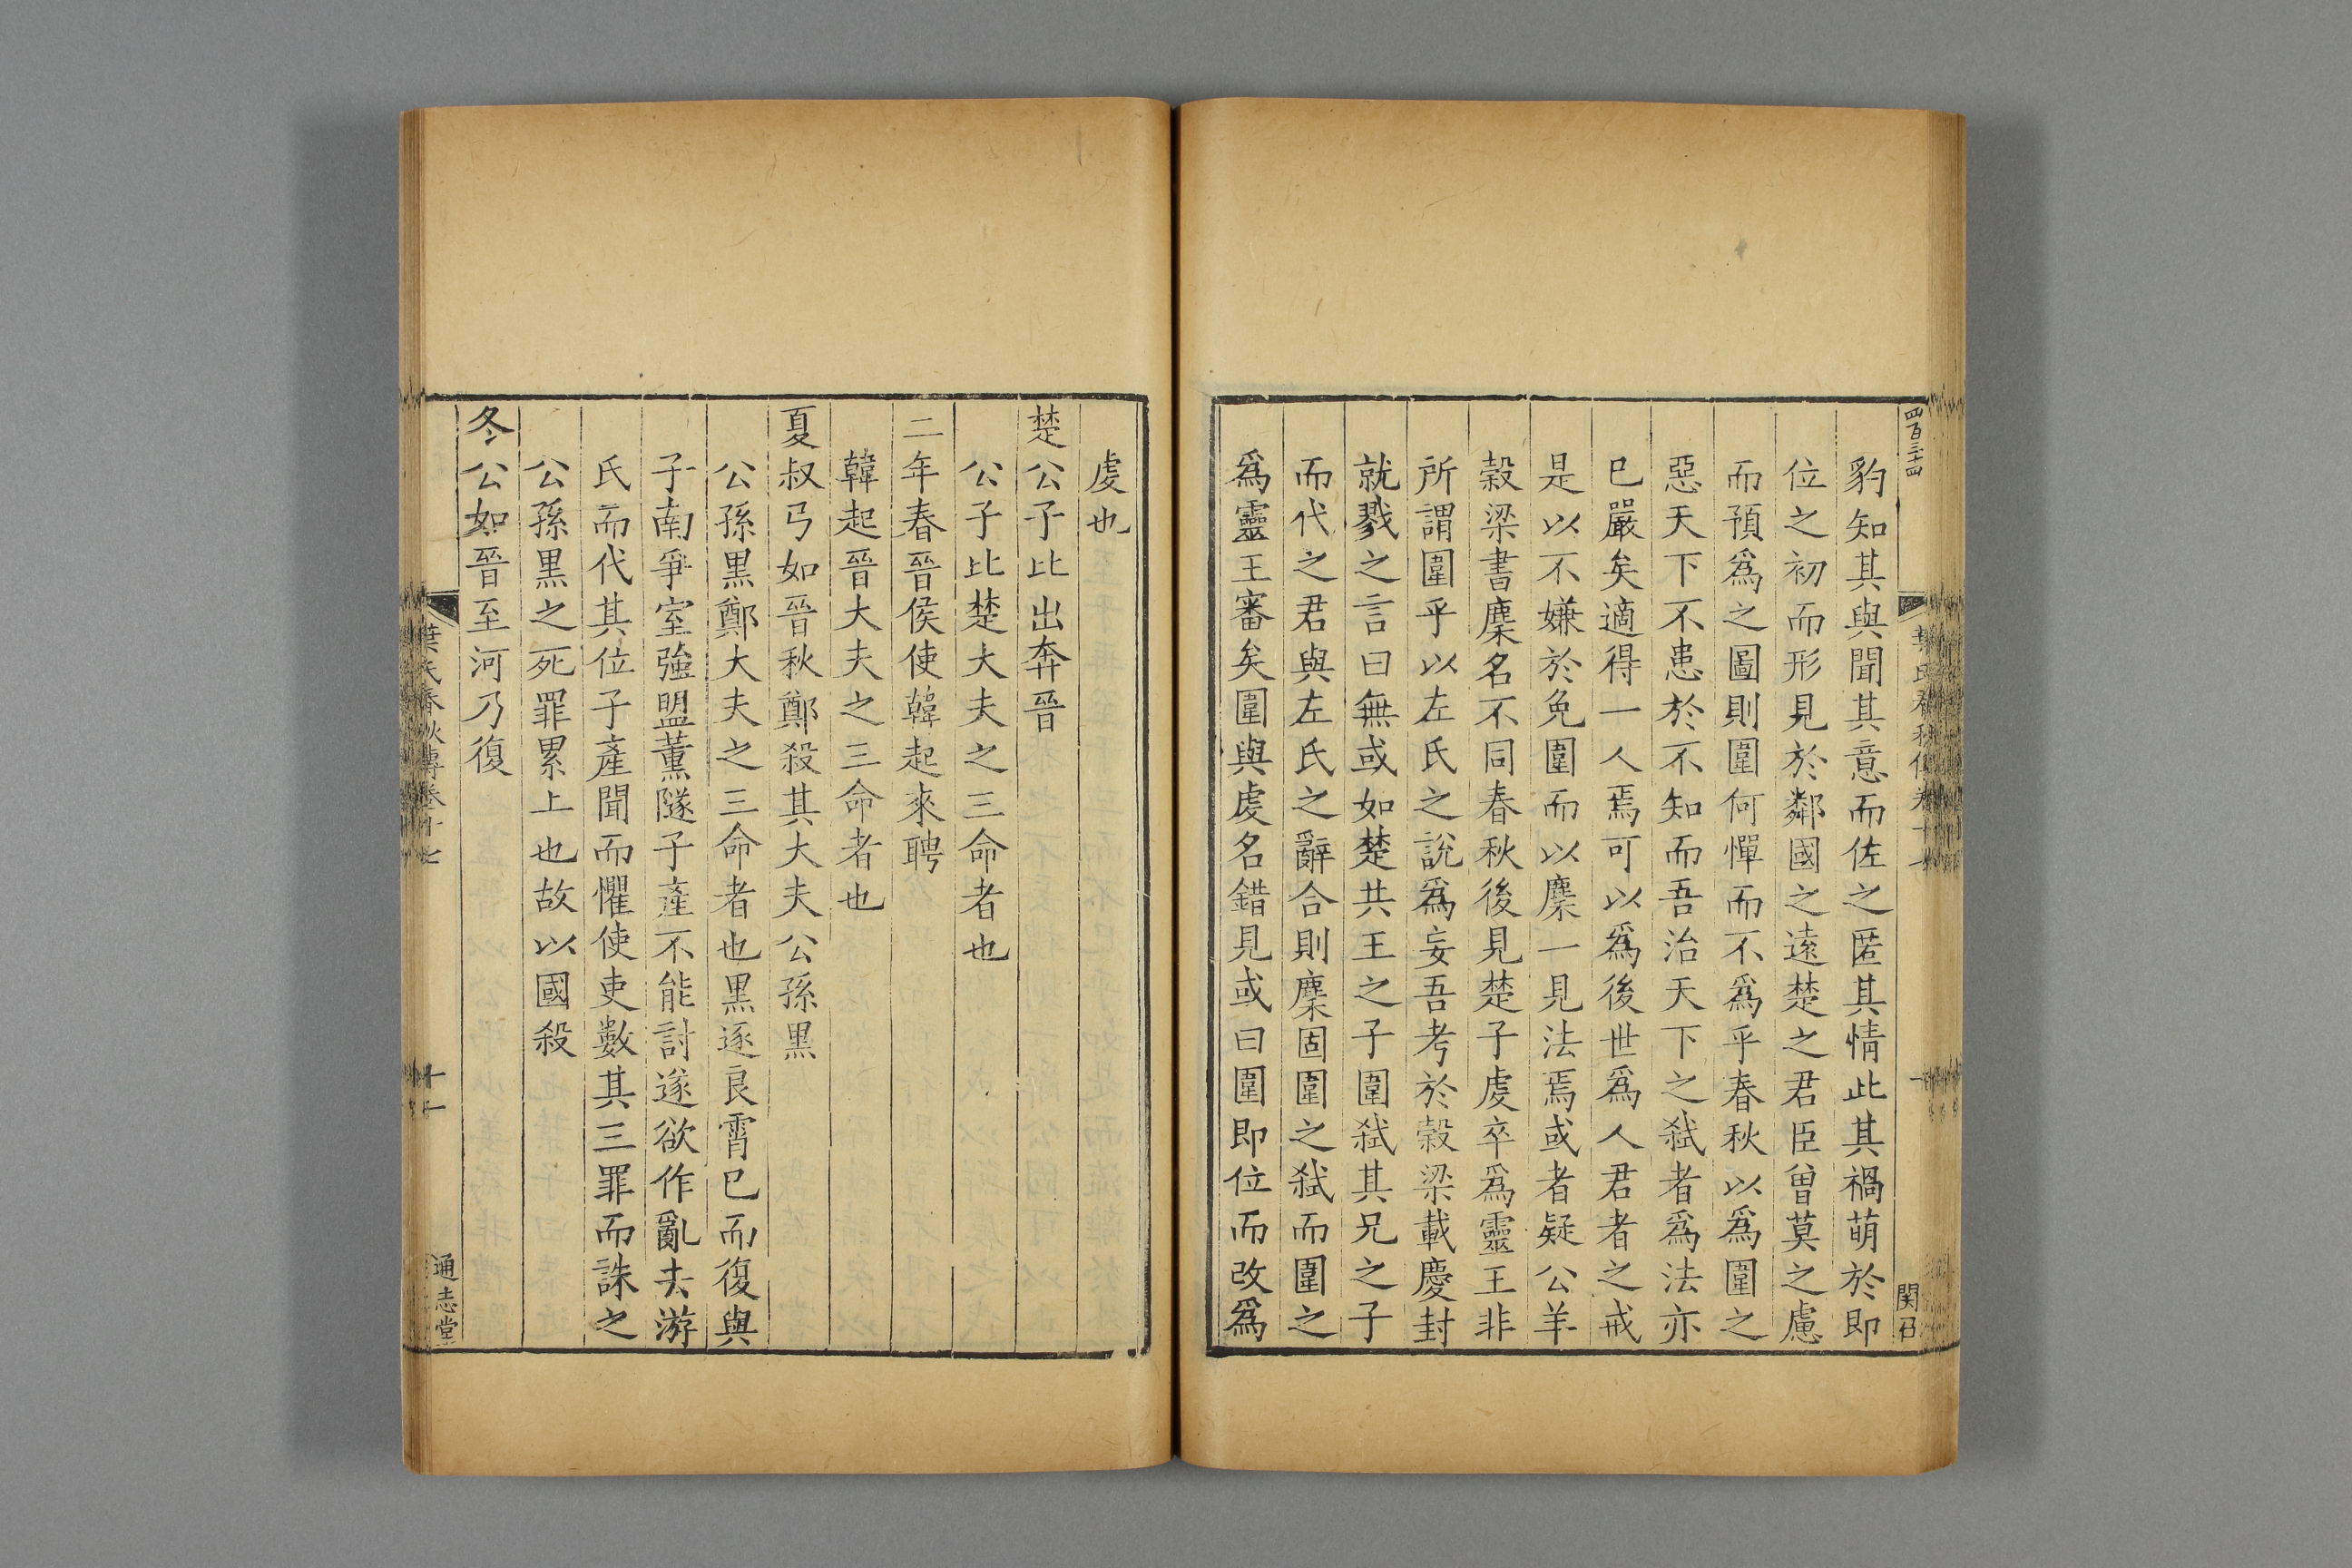 四百三十四
関召
豹知其與聞其意而佐之匿其情此其禍萌於即
位之初而形見於鄰國之遠楚之君臣曾莫之慮
而預爲之圖則圍何憚而不爲乎春秋以爲圍之
惡天下不患於不知而吾治天下之弑者爲法亦
已嚴矣適得一人焉可以爲後世爲人君者之戒
是以不嫌於免圍而以麇一見法焉或者疑公羊
榖梁書麇名不同春秋後見楚子虔卒爲靈王非
所謂圍乎以左氏之說爲妄吾考於榖梁載慶封
就戮之言曰無或如楚共王之子圍弑其兄之子
而代之君與左氏之辭合則麇固圍之弑而圍之
爲靈王審矣圍與虔名錯見或曰圍即位而改爲
虔也
楚公子比出奔晉
公子比楚大夫之三命者也
二年春晉侯使韓起來聘
韓起晉大夫之三命者也
夏叔弓如晉秋鄭殺其大夫公孫黑
公孫黑鄭大夫之三命者也黑逐良霄已而復與
子南爭室強盟薰隧子產不能討遂欲作亂去游
氏而代其位子產聞而懼使吏數其三罪而誅之
公孫黑之死罪累上也故以國殺
冬公如晉至河乃復
葉氏春秋傳卷十七
十一
通志堂